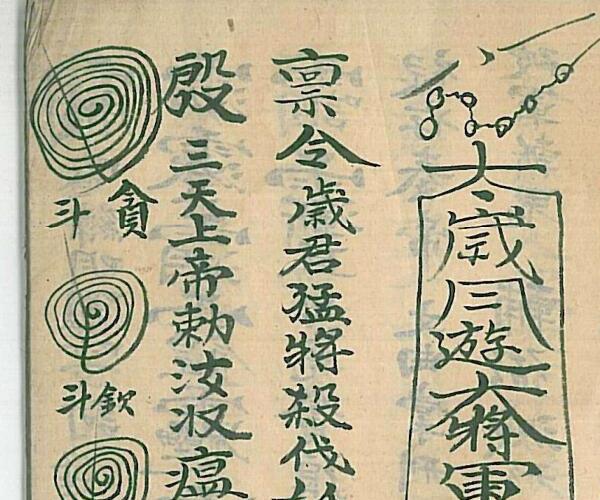 太歲四遊大將軍
禀令歲君猛將殺伐
殷三天上帝勅汝収瘟
貪斗
欽斗